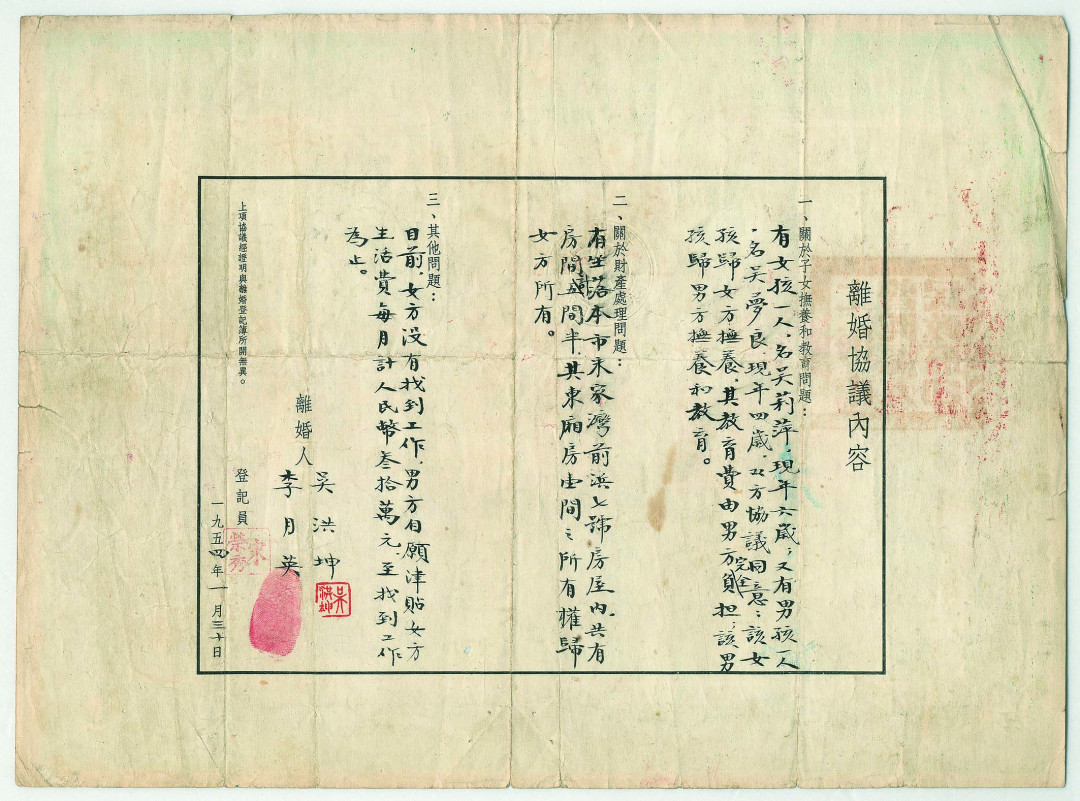 離婚協議內容
一、關於子女撫養和教育問題：
有女孩一人，名吴莉萍，現年六歲，又有男孩一人
，名吴夢良，現年四歲，双方協議同意：該女
孩歸女方撫養，其教育費由男方完全負担，該男
孩歸男方撫養和教育。
二、關於財產處理問題：
有坐落本市朱家灣前浜七號房屋內，共有
房間 間半，其東廂房 間之所有權歸
女方所有。
三、其他問題：
目前，女方没有找到工作，男方自願津貼女方
生活費每月計人民幣叁拾萬元，至找到工作
為止。
上項協議經證明與離婚登記簿所開無異。
離婚人
吴洪坤
李月英
登記員
一九五四年一月三十日